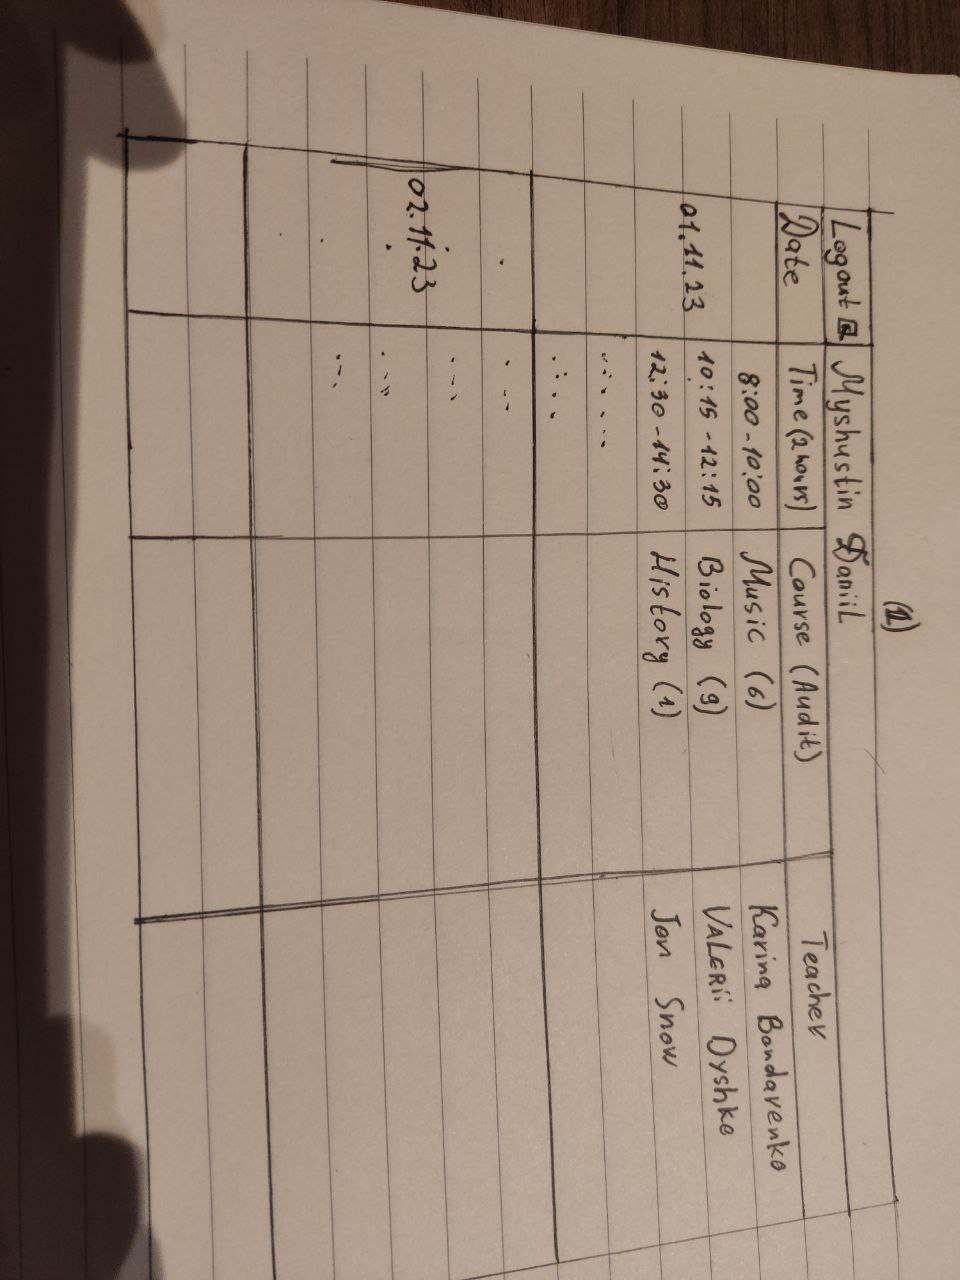 (1)
Logout Myshustin Daniil
Date Time (2 hours) Course (Audit) Teacher
8:00-10:00 Music (6) Karina Bondarenko
01.11.23 10:15-12:15 Biology (9) VALERii Dyshko
12:30-14:30 History (1) Jon Snow
02.11.23